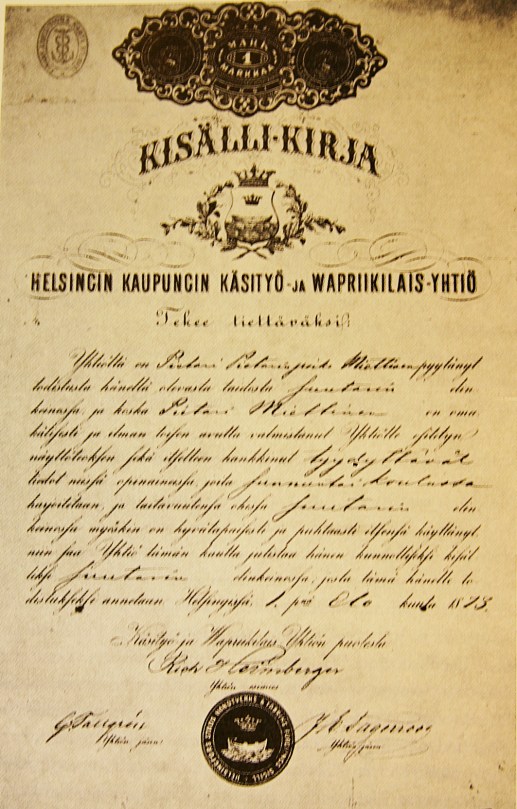 MARK
1
MARKKAA
KISÄLLI-KIRJA
HELSINGIN KAUPUNGIN KÄSITYÖ-JA WAPRIIKILAIS-YHTIÖ
Tekee tiettäväksi:
Yhtiöltä on Pietari Pietarinpoika Miettinen pyytänyt
todistusta hänellä olevasta taidosta Suutarin elin-
keinossa, ja koska Pietari Miettinen on oma-
kätisesti ja ilman toisen avutta valmistanut Yhtiölle esitetyn
näyttöteoksen sekä itselleen hankkinut tyydyttävät
tiedot niissä opinaineissa, joita sunnuntai koulussa
harjoitetaan, ja taitavuutensa ohessa Suutarin elin-
keinossa myöskin on hyvätapaisesti ja puhtaasti itsensä käyttänyt,
niin saa Yhtiö tämän kautta julistaa hänen kunnolliseksi kisäl-
liksi Suutarin elinkeinossa, josta tämä hänelle to-
distukseksi annetaan. Helsingissä, 1. p:nä Elo kuuta 1873.
Käsityö ja Wapriikilais Yhtiön puolesta
Yhtiön esimies
G. Tallgrén
Yhtiön jäsen
Yhtiön jäsen